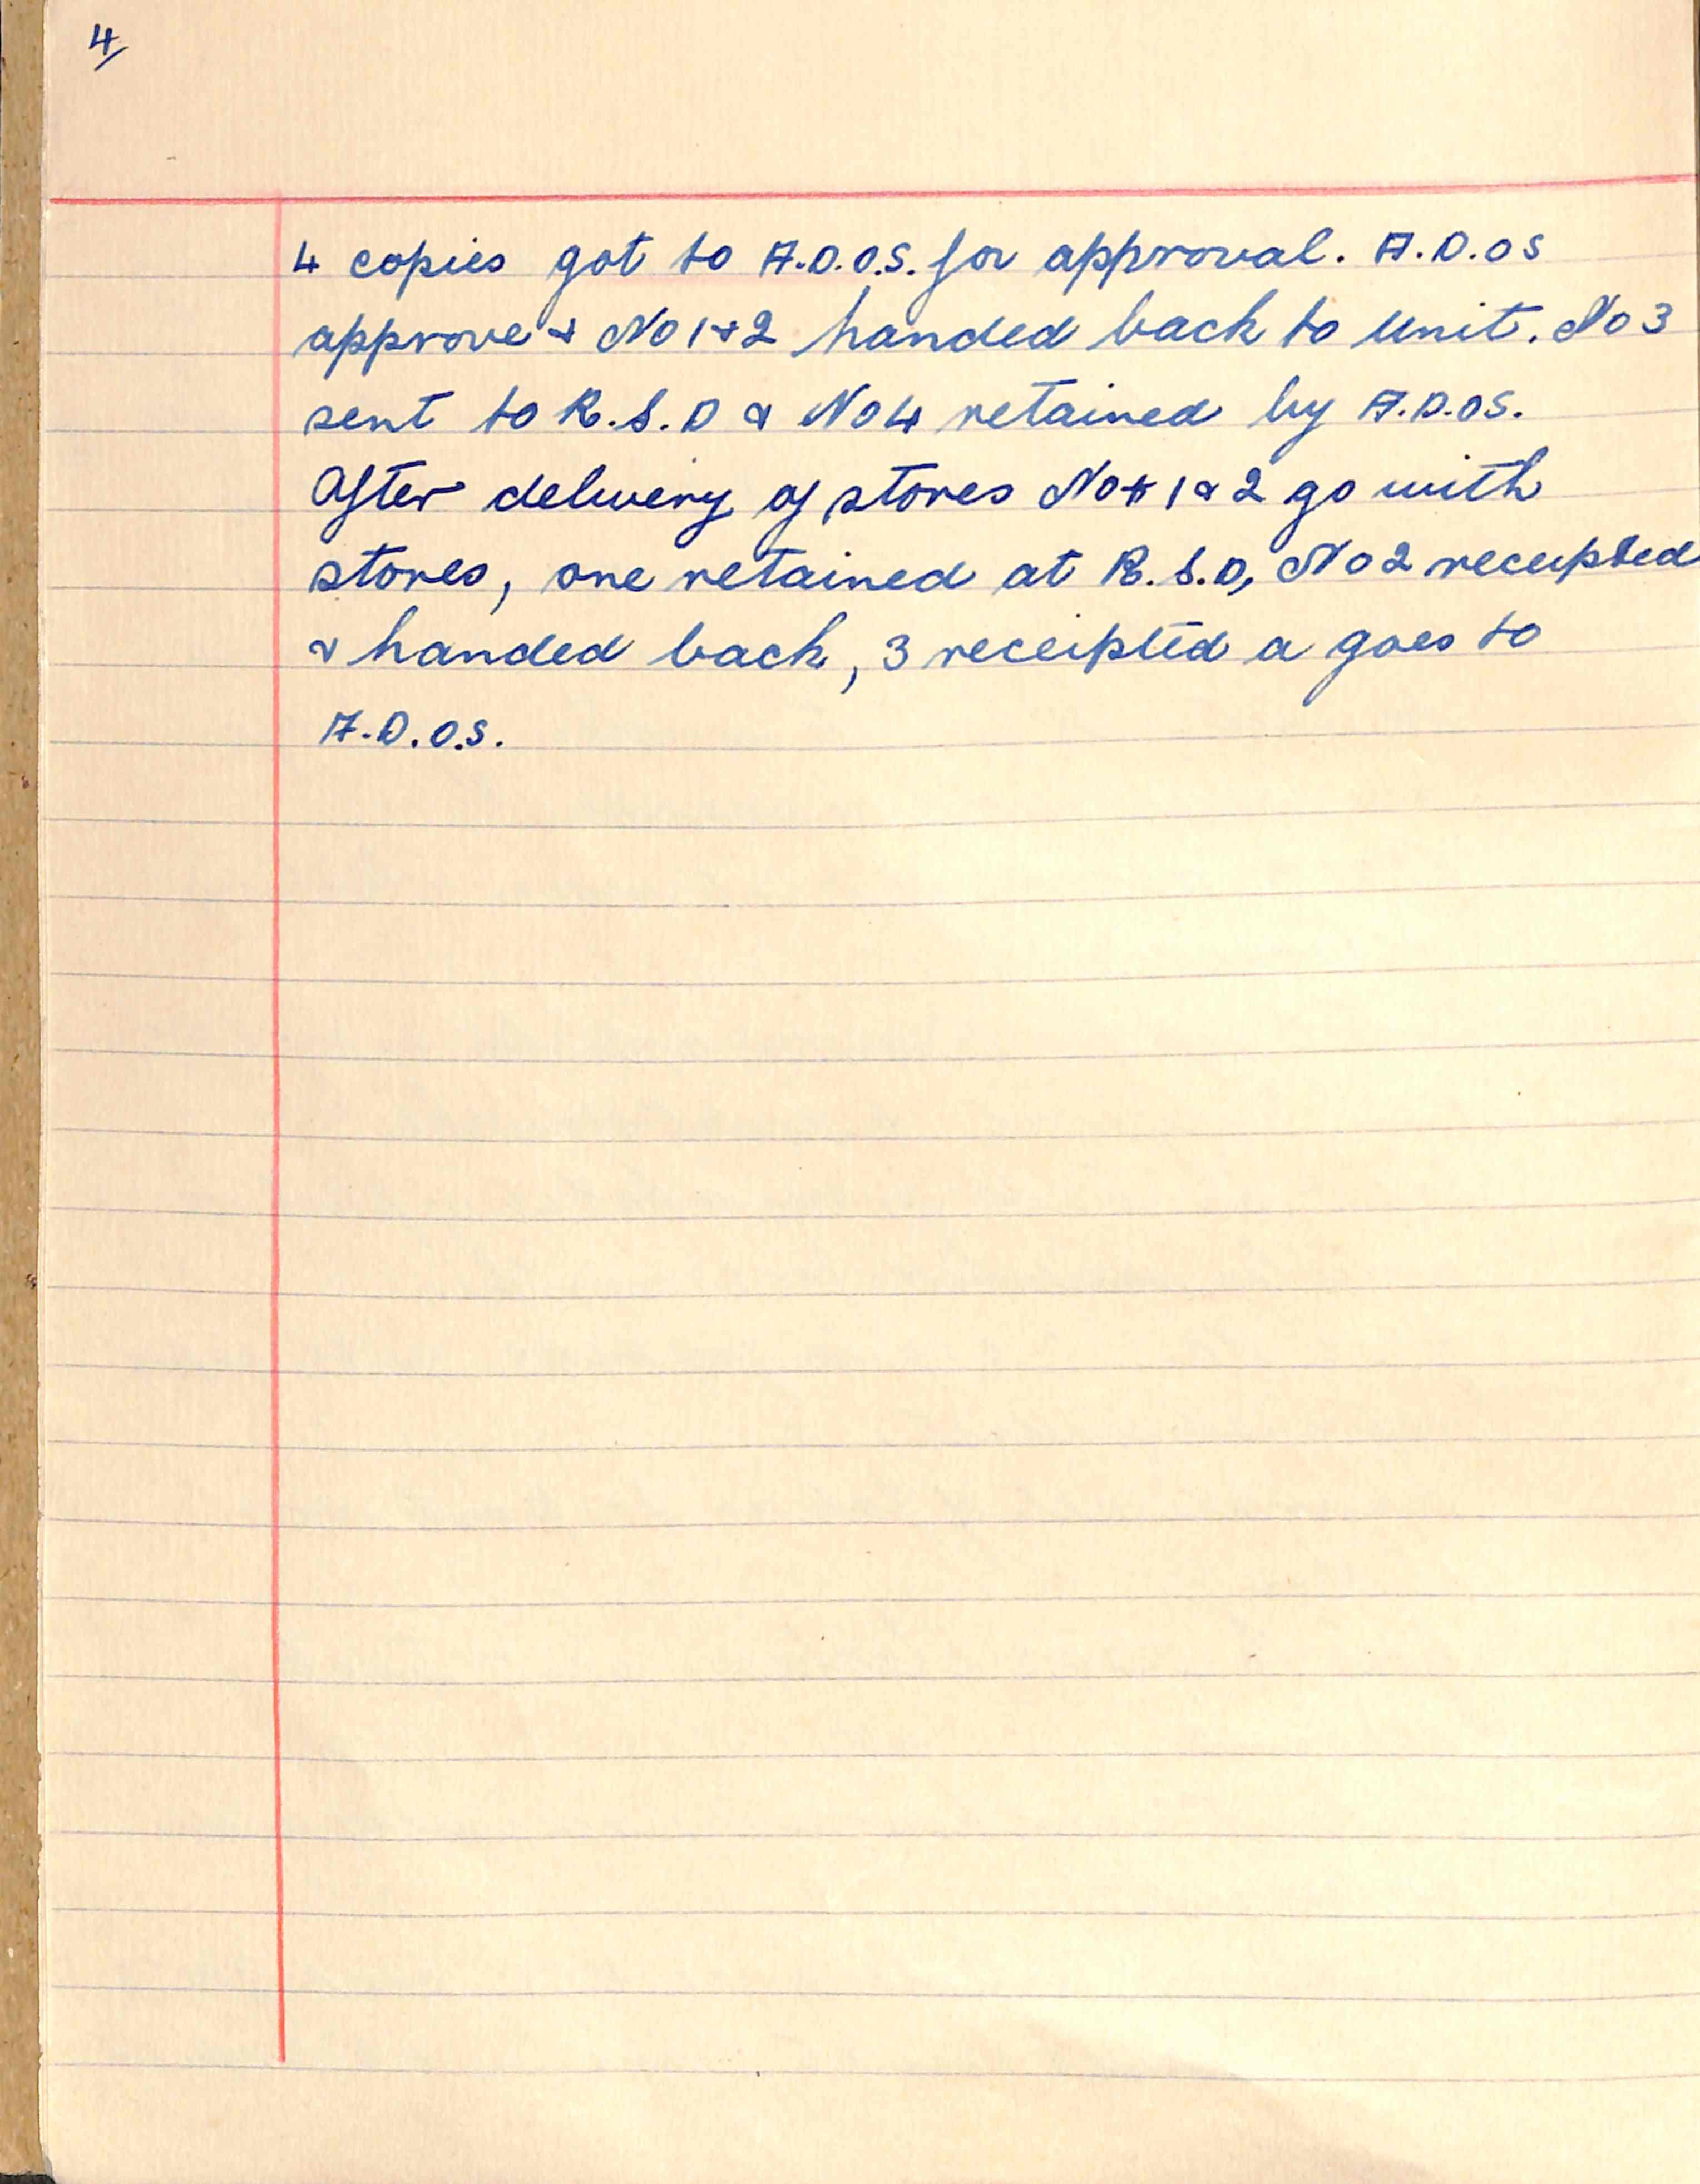 4/
4 copies got to A.D.O.S. for approval. A.D.OS
approve & No 1 & 2 handed back to Unit. No 3
sent to R.S.D & No 4 retained by A.D.OS.
After delivery of stores No 1 & 2 go with
stores, one retained at R.S.D, No 2 receipted
& handed back, 3 receipted & goes to
A.D.O.S.